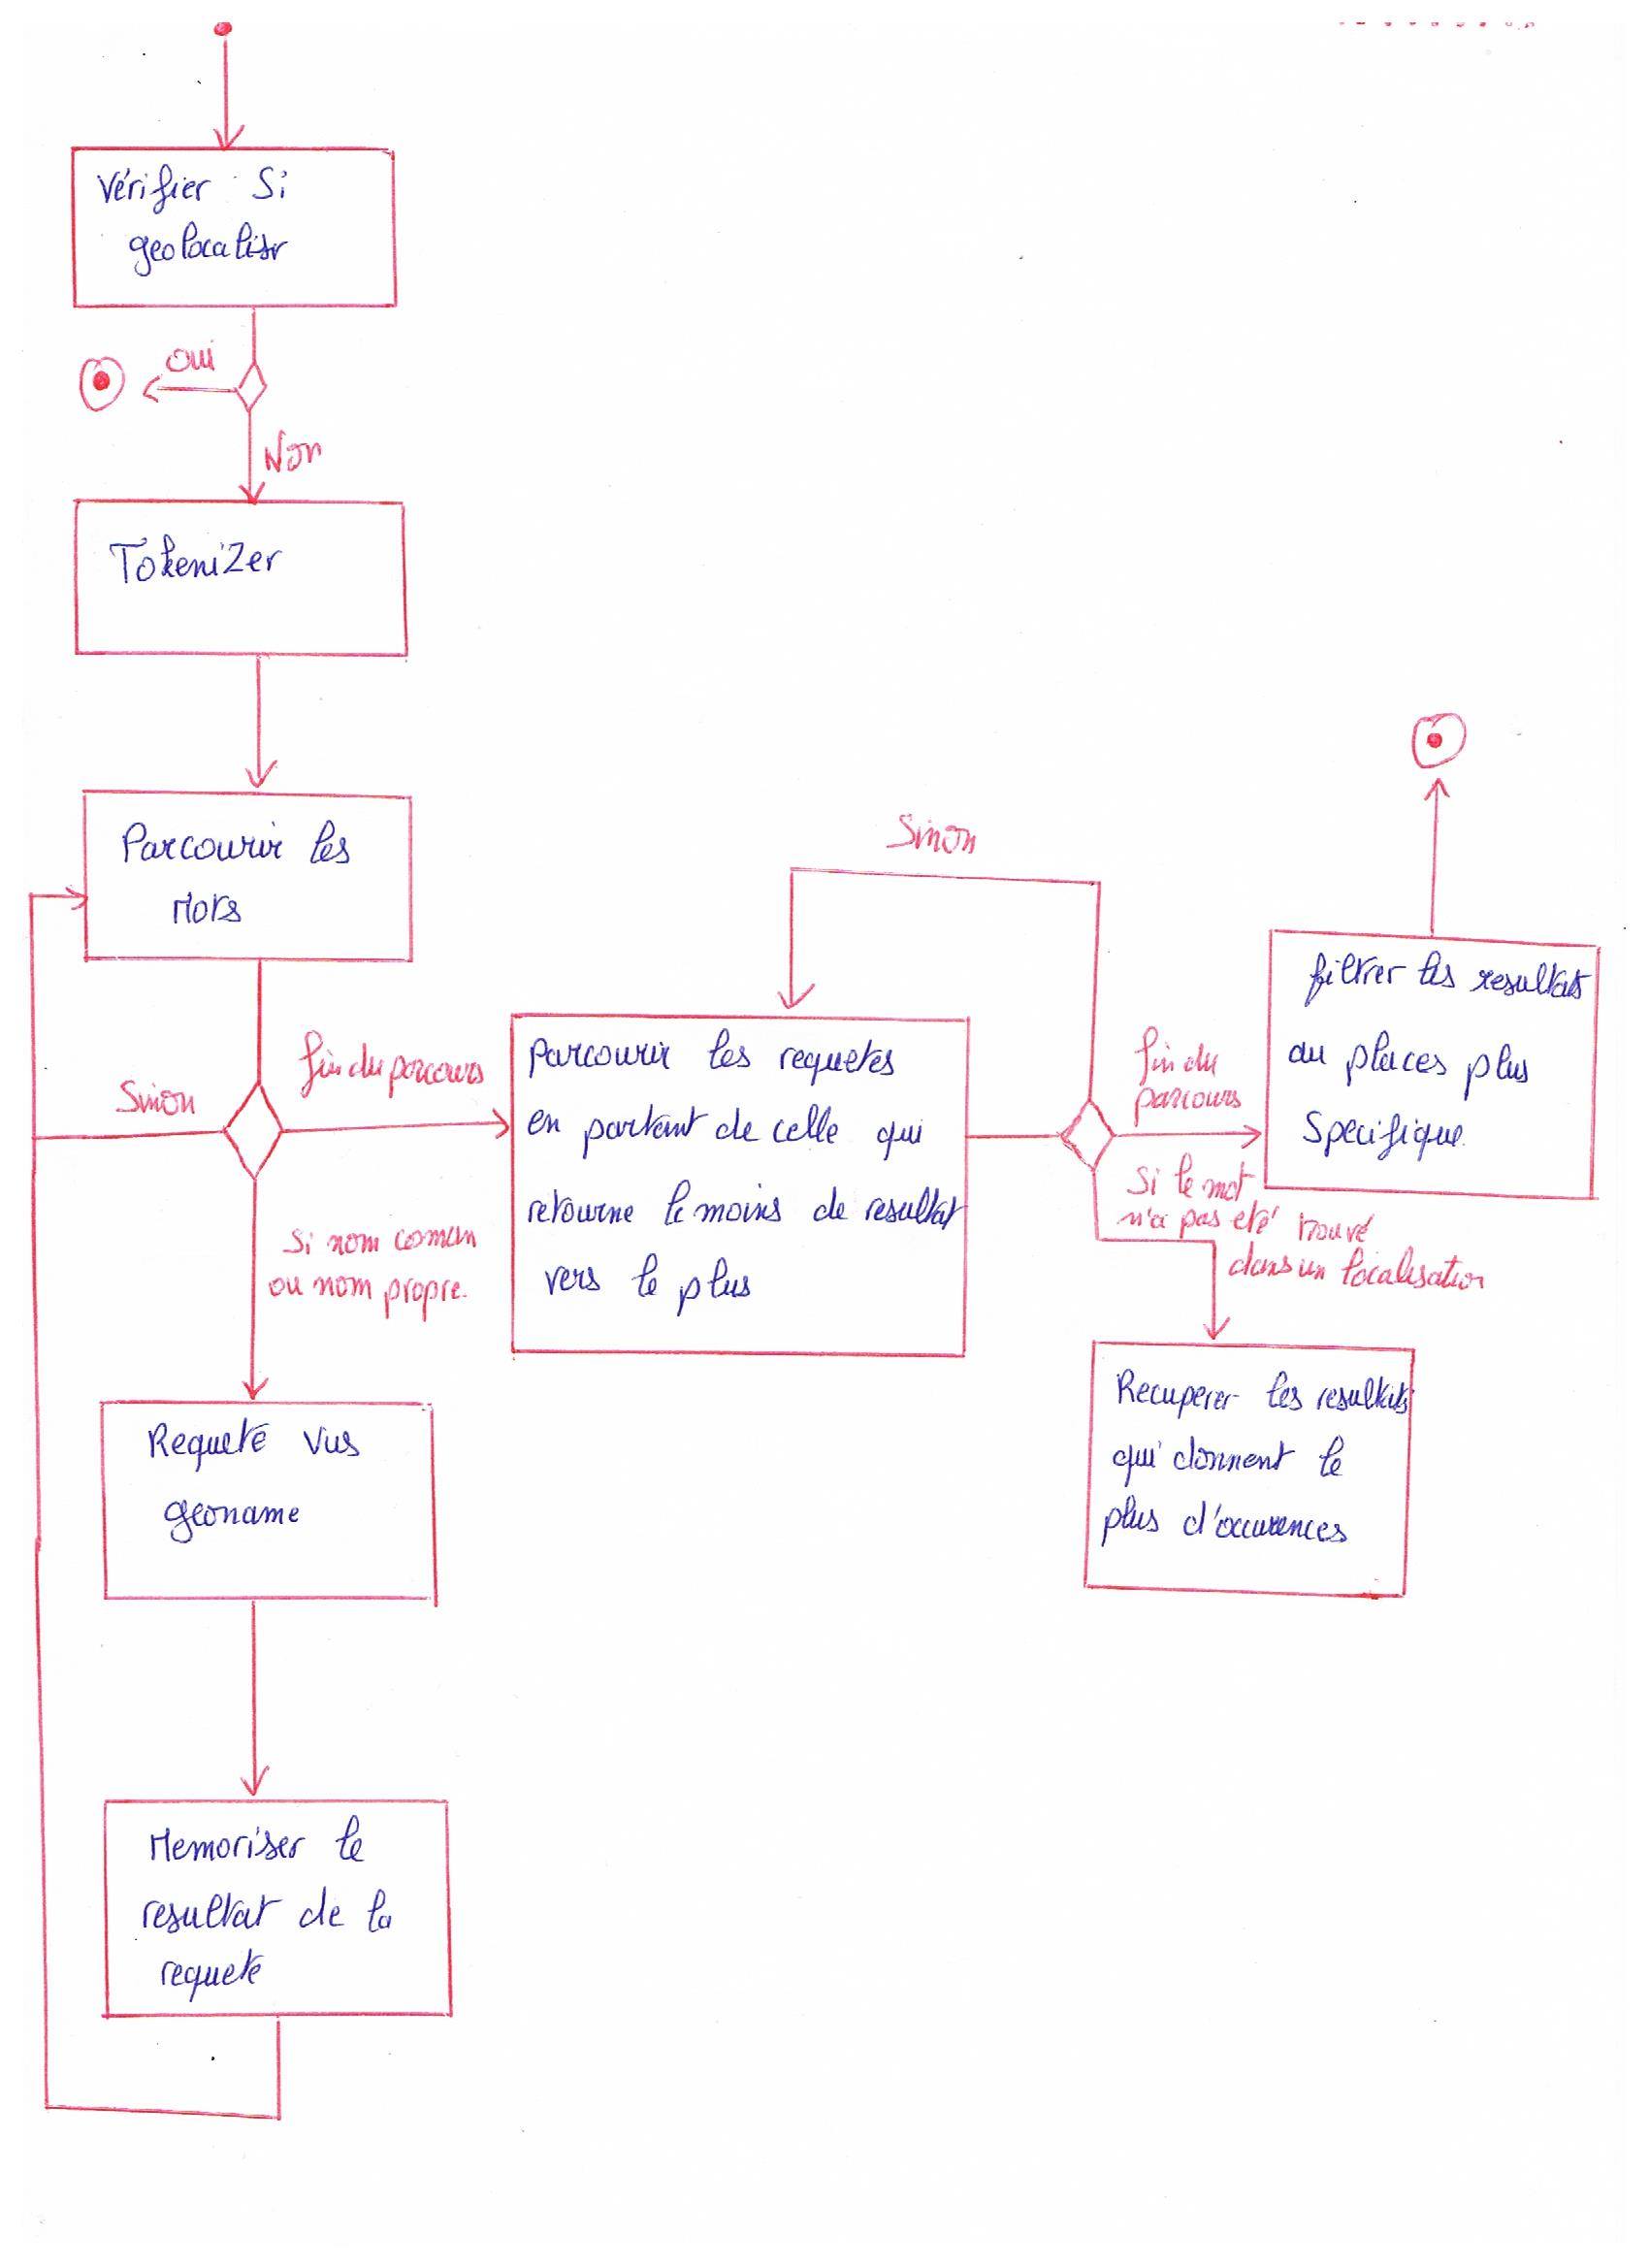 Vérifier Si
geolocaliser
oui
Non
Tokenizer
Parcourir les
Mots
Sinon
fin du parcours
Si nom comun
ou nom propre.
Requete vus
geoname
Memoriser le
resultat de la
requete
Sinon
Parcourir les requetes
en partant de celle qui
retourne le moins de resultat
vers le plus
fin du
parcours
Si le mot
n'a pas eté trouvé
dans un localisation
filtrer les resultats
au places plus
Specifique.
Recuperer les resultats
qui donnent le
plus d'occurences